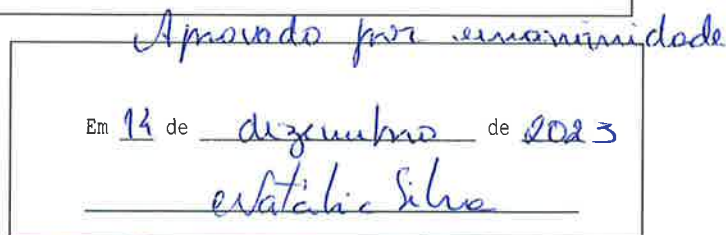 Aprovado por unanimidade
Em 14 de dezembro de 2023
Natália Silva